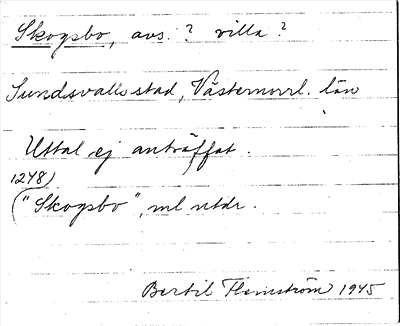 Skogsbo, avs. ? villa ?
Sundsvalls stad, Västernorrl. län
Uttal ej anträffat.
1248)
("Skogsbo", ml ntdr.
Bertil Flemström 1945